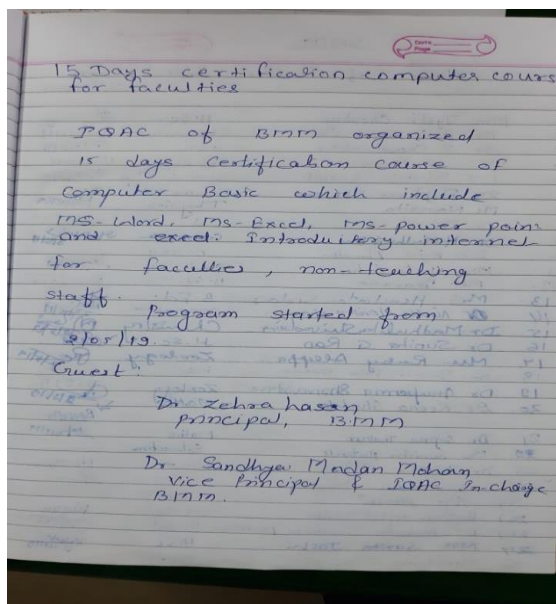 Date
Page
15 Days certification computer cours
for faculties
IQAC of BMM organized
15 days certification course of
Computer Basic which include
MS-Word, MS-Excel, MS-power point
and excel. Introductory internet
for faculties, non-teaching
staff.
Program started from
2/05/19.
Guest:
Dr Zehra hasan
principal, BMM
Dr Sandhya Madan Mohan
Vice Principal & IQAC In-charge
BMM.